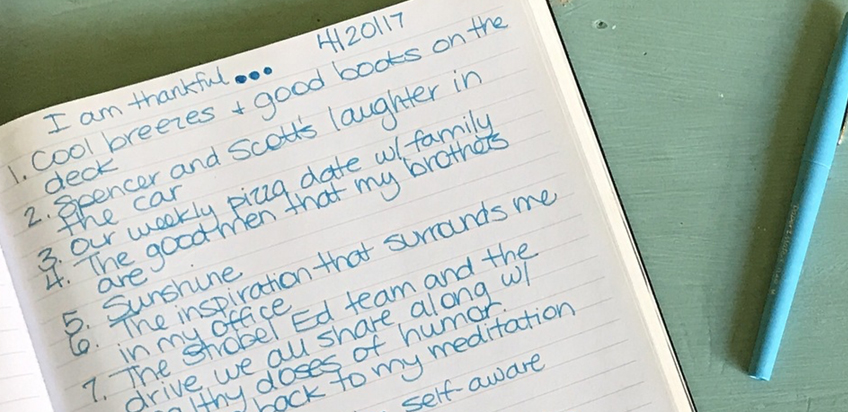 4/20/17
I am thankful...
1. Cool breezes + good books on the
deck
2. Spencer and Scott's laughter in
the car
3. Our weekly pizza date w/ family
4. The good men that my brothers
are
5. Sunshine
6. The inspiration that surrounds me
in my office
7. The Strobel Ed team and the
drive we all share along w/
doses of humor.
back to my meditation
self-aware